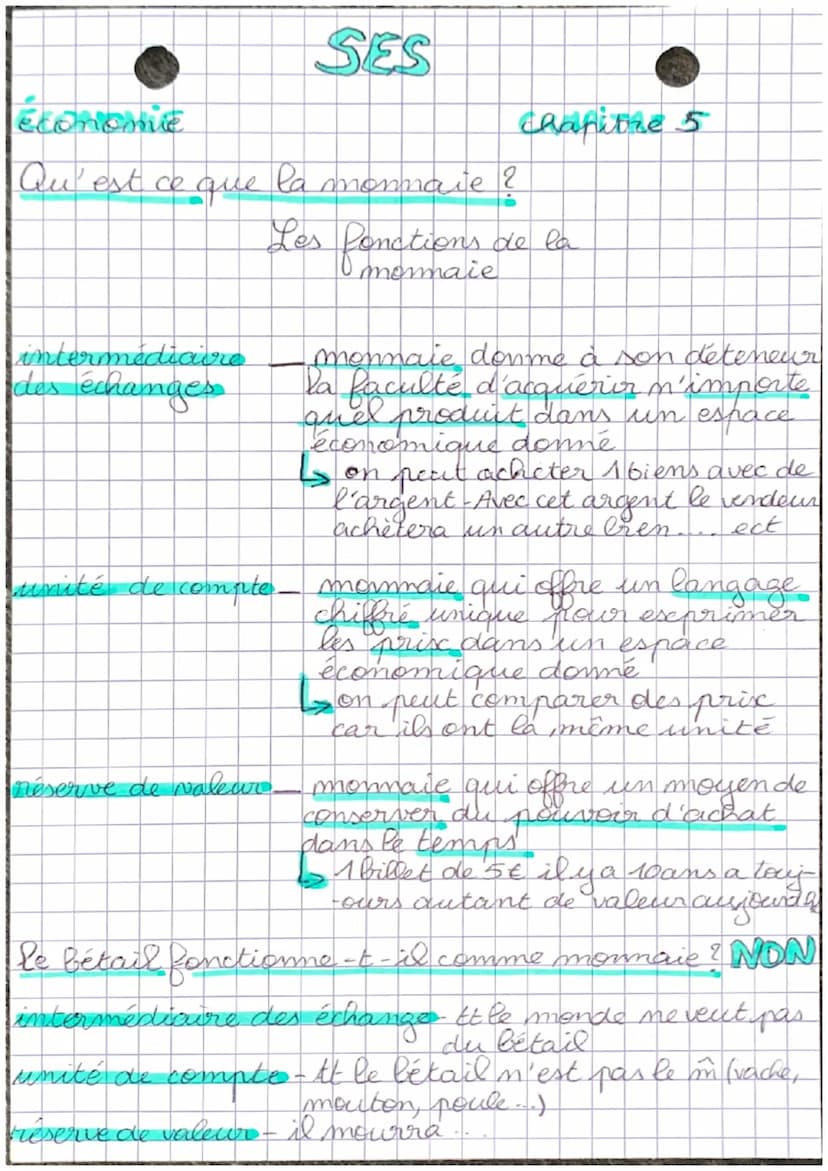 SES
économie chapitre 5
Qu'est ce que la monnaie ?
Les fonctions de la
monnaie
intermédiaire — monnaie donne à son déteneur
des échanges la faculté d'acquérir n'importe
quel produit dans un espace
économique donné
↳ on peut acheter 1 biens avec de
l'argent - Avec cet argent le vendeur
achètera un autre bien.... ect
unité de compte — monnaie qui offre un langage
chiffré unique pour exprimer
les prix dans un espace
économique donné
↳ on peut comparer des prix
car ils ont la même unité
réserve de valeur — monnaie qui offre un moyen de
conserver du pouvoir d'achat
dans le temps
↳ 1 billet de 5€ il y a 10 ans a touj-
-ours autant de valeur aujourd
le bétail fonctionne-t-il comme monnaie ? NON
intermédiaire des échange - tt le monde ne veut pas
du bétail
unité de compte - tt le bétail n'est pas le m̂ (vache,
mouton, poule...)
réserve de valeur - il mourra ...